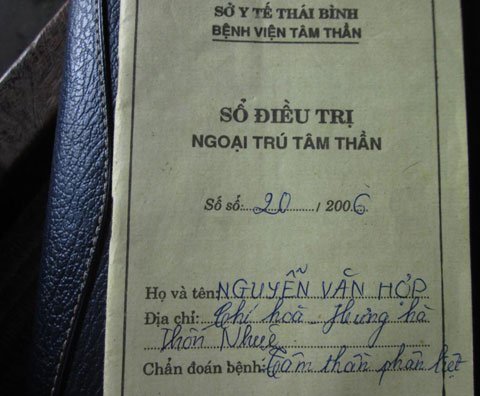 SỞ Y TẾ THÁI BÌNH
BỆNH VIỆN TÂM THẦN
SỔ ĐIỀU TRỊ
NGOẠI TRÚ TÂM THẦN
Số sổ: 20 / 2006
Họ và tên: NGUYỄN VĂN HỢP
Địa chỉ: Chí hoà - Hưng hà
Thôn Nhuệ
Chẩn đoán bệnh: Tâm thần phân liệt